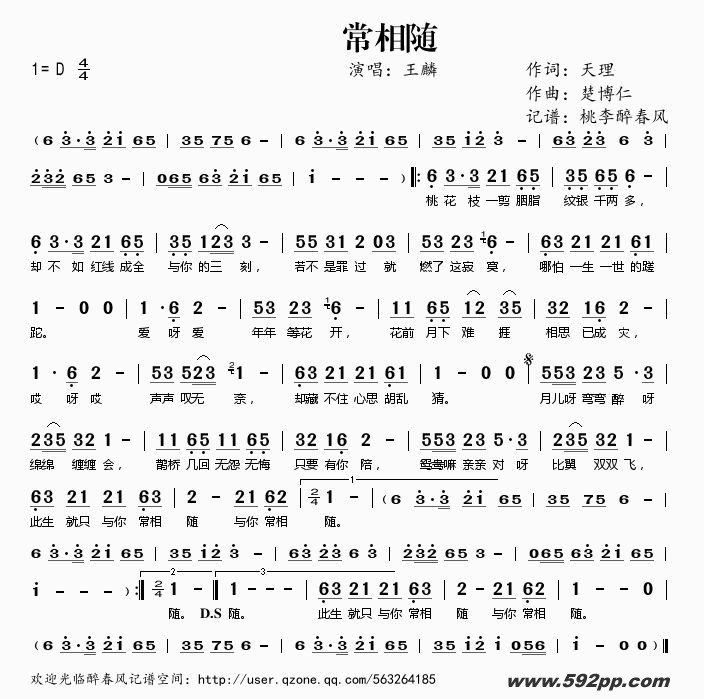 常相随
1= D 4/4 演唱：王麟 作词：天理
作曲：楚博仁
记谱：桃李醉春风
( 6 3·3 2i 65 | 35 75 6 - | 6 3·3 2i 65 | 35 i2 3 - | 63 23 6 3 |
232 65 3 - | 065 63 2i 65 | i - - - ) ‖: 6 3·3 21 65 | 35 35 6 - |
桃 花 枝 一剪 胭脂 纹银 千两 多，
6 3·3 21 65 | 35 123 3 - | 55 31 2 03 | 53 23 16 - | 63 21 21 61 |
却 不 如 红线 成全 与你 的三 刻， 若不 是罪 过 就 燃了 这寂 寞， 哪怕 一生 一世 的蹉
1 - 0 0 | 1 ·6 2 - | 53 23 16 - | 11 65 12 35 | 32 16 2 - |
跎。 爱 呀 爱 年年 等花 开， 花前 月下 难 捱 相思 已成 灾，
1 · 6 2 - | 53 523 21 - | 63 21 21 61 | 1 - 0 0 | 553 23 5 ·3 |
哎 呀 哎 声声 叹无 奈， 却藏 不住 心思 胡乱 猜。 月儿呀 弯弯 醉 呀
235 32 1 - | 11 65 11 65 | 32 16 2 - | 553 23 5·3 | 235 32 1 - |
绵绵 缠缠 会， 鹊桥 几回 无怨 无悔 只要 有你 陪， 鸳鸯嘛 亲亲 对 呀 比翼 双双 飞，
63 21 21 63 | 2 - 21 62 | 2/4 1 - | ( 6 3·3 2i 65 | 35 75 6 - |
1
此生 就只 与你 常相 随 与你 常相 随。
6 3·3 2i 65 | 35 i2 3 - | 63 23 6 3 | 232 65 3 - | 065 63 2i 65 |
i - - - ) :‖ 2/4 1 - ‖ 1 - - - | 63 21 21 63 | 2 - 21 62 | 1 - - 0 |
2 3
随。 D.S 随。 此生 就只 与你 常相 随 与你 常相 随。
( 6 3·3 2i 65 | 35 75 6 - | 6 3·3 2i 65 | 35 i2 i 056 | i - - 0 ) ‖
欢迎光临醉春风记谱空间：http://user.qzone.qq.com/563264185
www.592pp.com